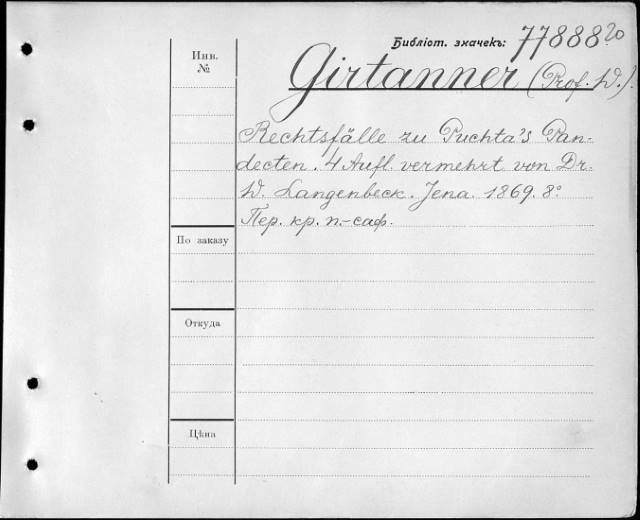 Библіот. значекъ: 77888 20
Инв.
№
Girtanner (Prof. W.).
Rechtsfälle zu Puchta's Pan-
decten. 4 Aufl. vermehrt von Dr.
W. Langenbeck. Jena. 1869. 8°
Пер. кр. п.-саф.
По заказу
Откуда
Цѣна